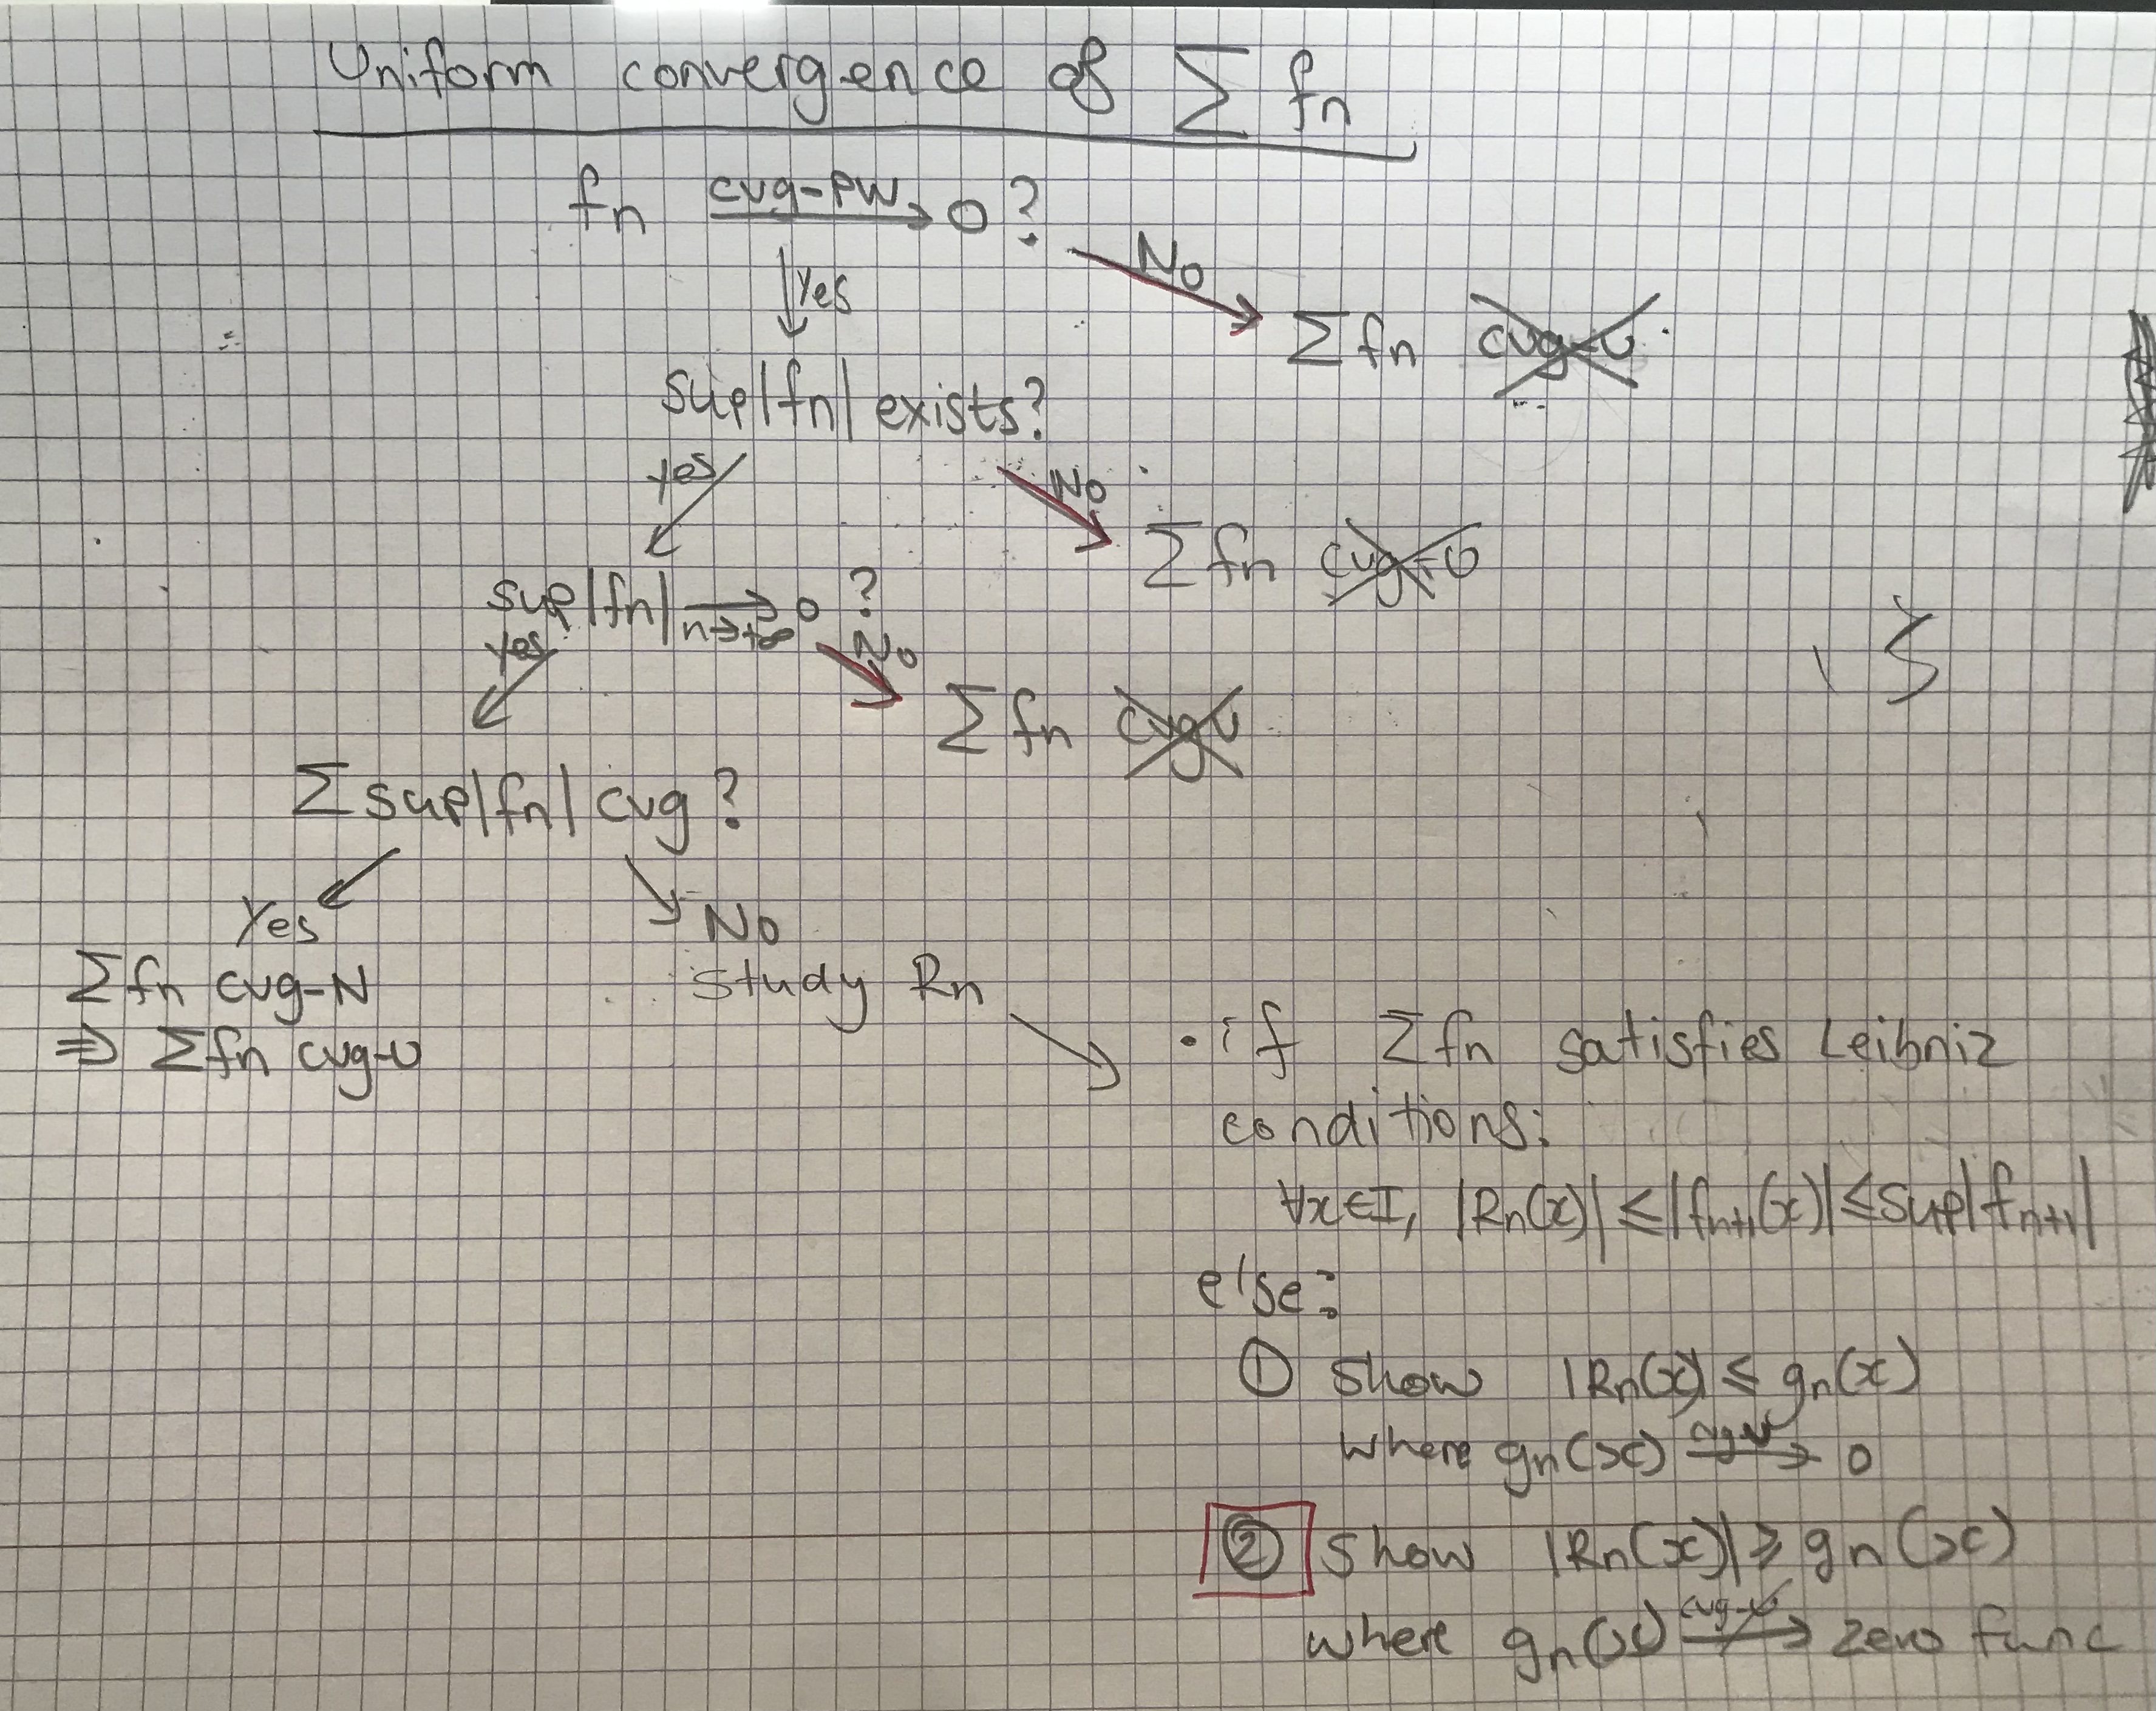 Uniform convergence of ∑ fn
fn cvg-PW → 0 ?
No
Yes
∑ fn cvg-U
sup|fn| exists?
yes
No
∑ fn cvg-U
sup|fn| → 0 ?
n→+∞
yes
No
∑ fn cvg U
∑ sup|fn| cvg ?
Yes
No
∑ fn cvg-N
study Rn
⇒ ∑ fn cvg-U
• if ∑ fn satisfies Leibniz
conditions:
∀x∈I, |Rn(x)| ≤ |fn+1(x)| ≤ sup|fn+1|
else:
① show |Rn(x)| ≤ gn(x)
where gn(x) → 0
② show |Rn(x)| ≥ gn(x)
where gn(x) cvg-U → zero func